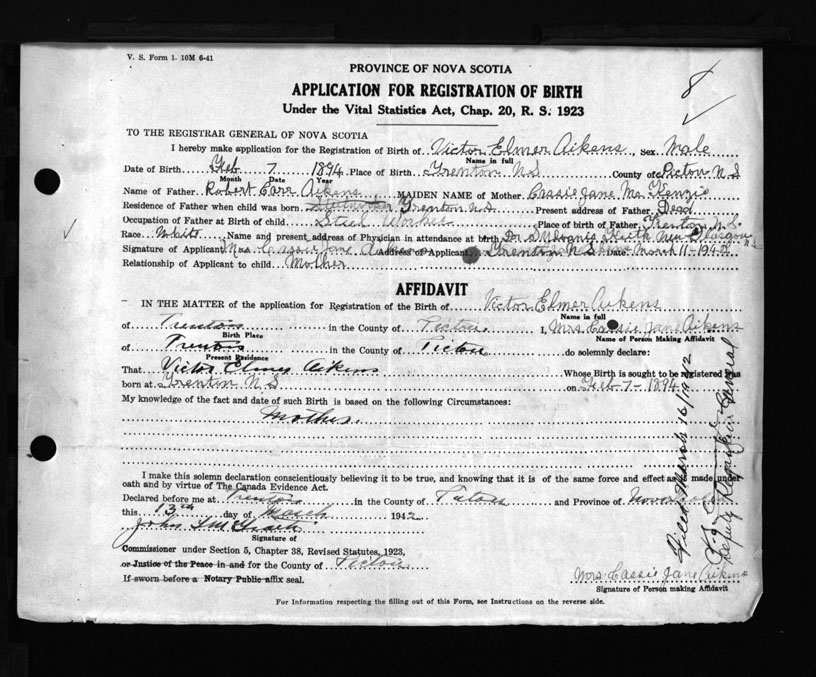 V. S. Form 1. 10M 6-41
PROVINCE OF NOVA SCOTIA
8
APPLICATION FOR REGISTRATION OF BIRTH
Under the Vital Statistics Act, Chap. 20, R. S. 1923
TO THE REGISTRAR GENERAL OF NOVA SCOTIA
I hereby make application for the Registration of Birth of Victor Elmer Aikens, Sex Male
Name in full
Date of Birth Feb 7 1894 Place of Birth Trenton N.S County of Pictou N.S
Month Date Year
Name of Father Robert Carr Aikens, MAIDEN NAME of Mother Cassie Jane Mc Kenzie
Residence of Father when child was born Trenton N.S Present address of Father Dead
Occupation of Father at Birth of child Steel Worker Place of birth of Father Trenton N.S.
Race White Name and present address of Physician in attendance at birth Dr New Glasgow N.S
Signature of Applicant Mrs. Cassie Jane Aikens Address of Applicant Trenton N.S Date March 11-1942
Relationship of Applicant to child Mother
AFFIDAVIT
IN THE MATTER of the application for Registration of the Birth of Victor Elmer Aikens
Name in full
of Trenton in the County of Pictou I, Mrs Cassie Jane Aikens
Birth Place Name of Person Making Affidavit
of Trenton in the County of Pictou do solemnly declare:
Present Residence
That Victor Elmer Aikens Whose Birth is sought to be registered was
born at Trenton N.S on Feb-7-1894
My knowledge of the fact and date of such Birth is based on the following Circumstances:
Mother.
I make this solemn declaration conscientiously believing it to be true, and knowing that it is of the same force and effect as if made under
oath and by virtue of The Canada Evidence Act.
Declared before me at Trenton in the County of Pictou and Province of Nova Scotia
this 13th day of March 1942
John
Signature of
Commissioner under Section 5, Chapter 38, Revised Statutes, 1923,
or Justice of the Peace in and for the County of Pictou
If sworn before a Notary Public affix seal.
Mrs. Cassie Jane Aikens
Signature of Person making Affidavit
For Information respecting the filling out of this Form, see Instructions on the reverse side.
Filed March 16/1942
Deputy Registrar General